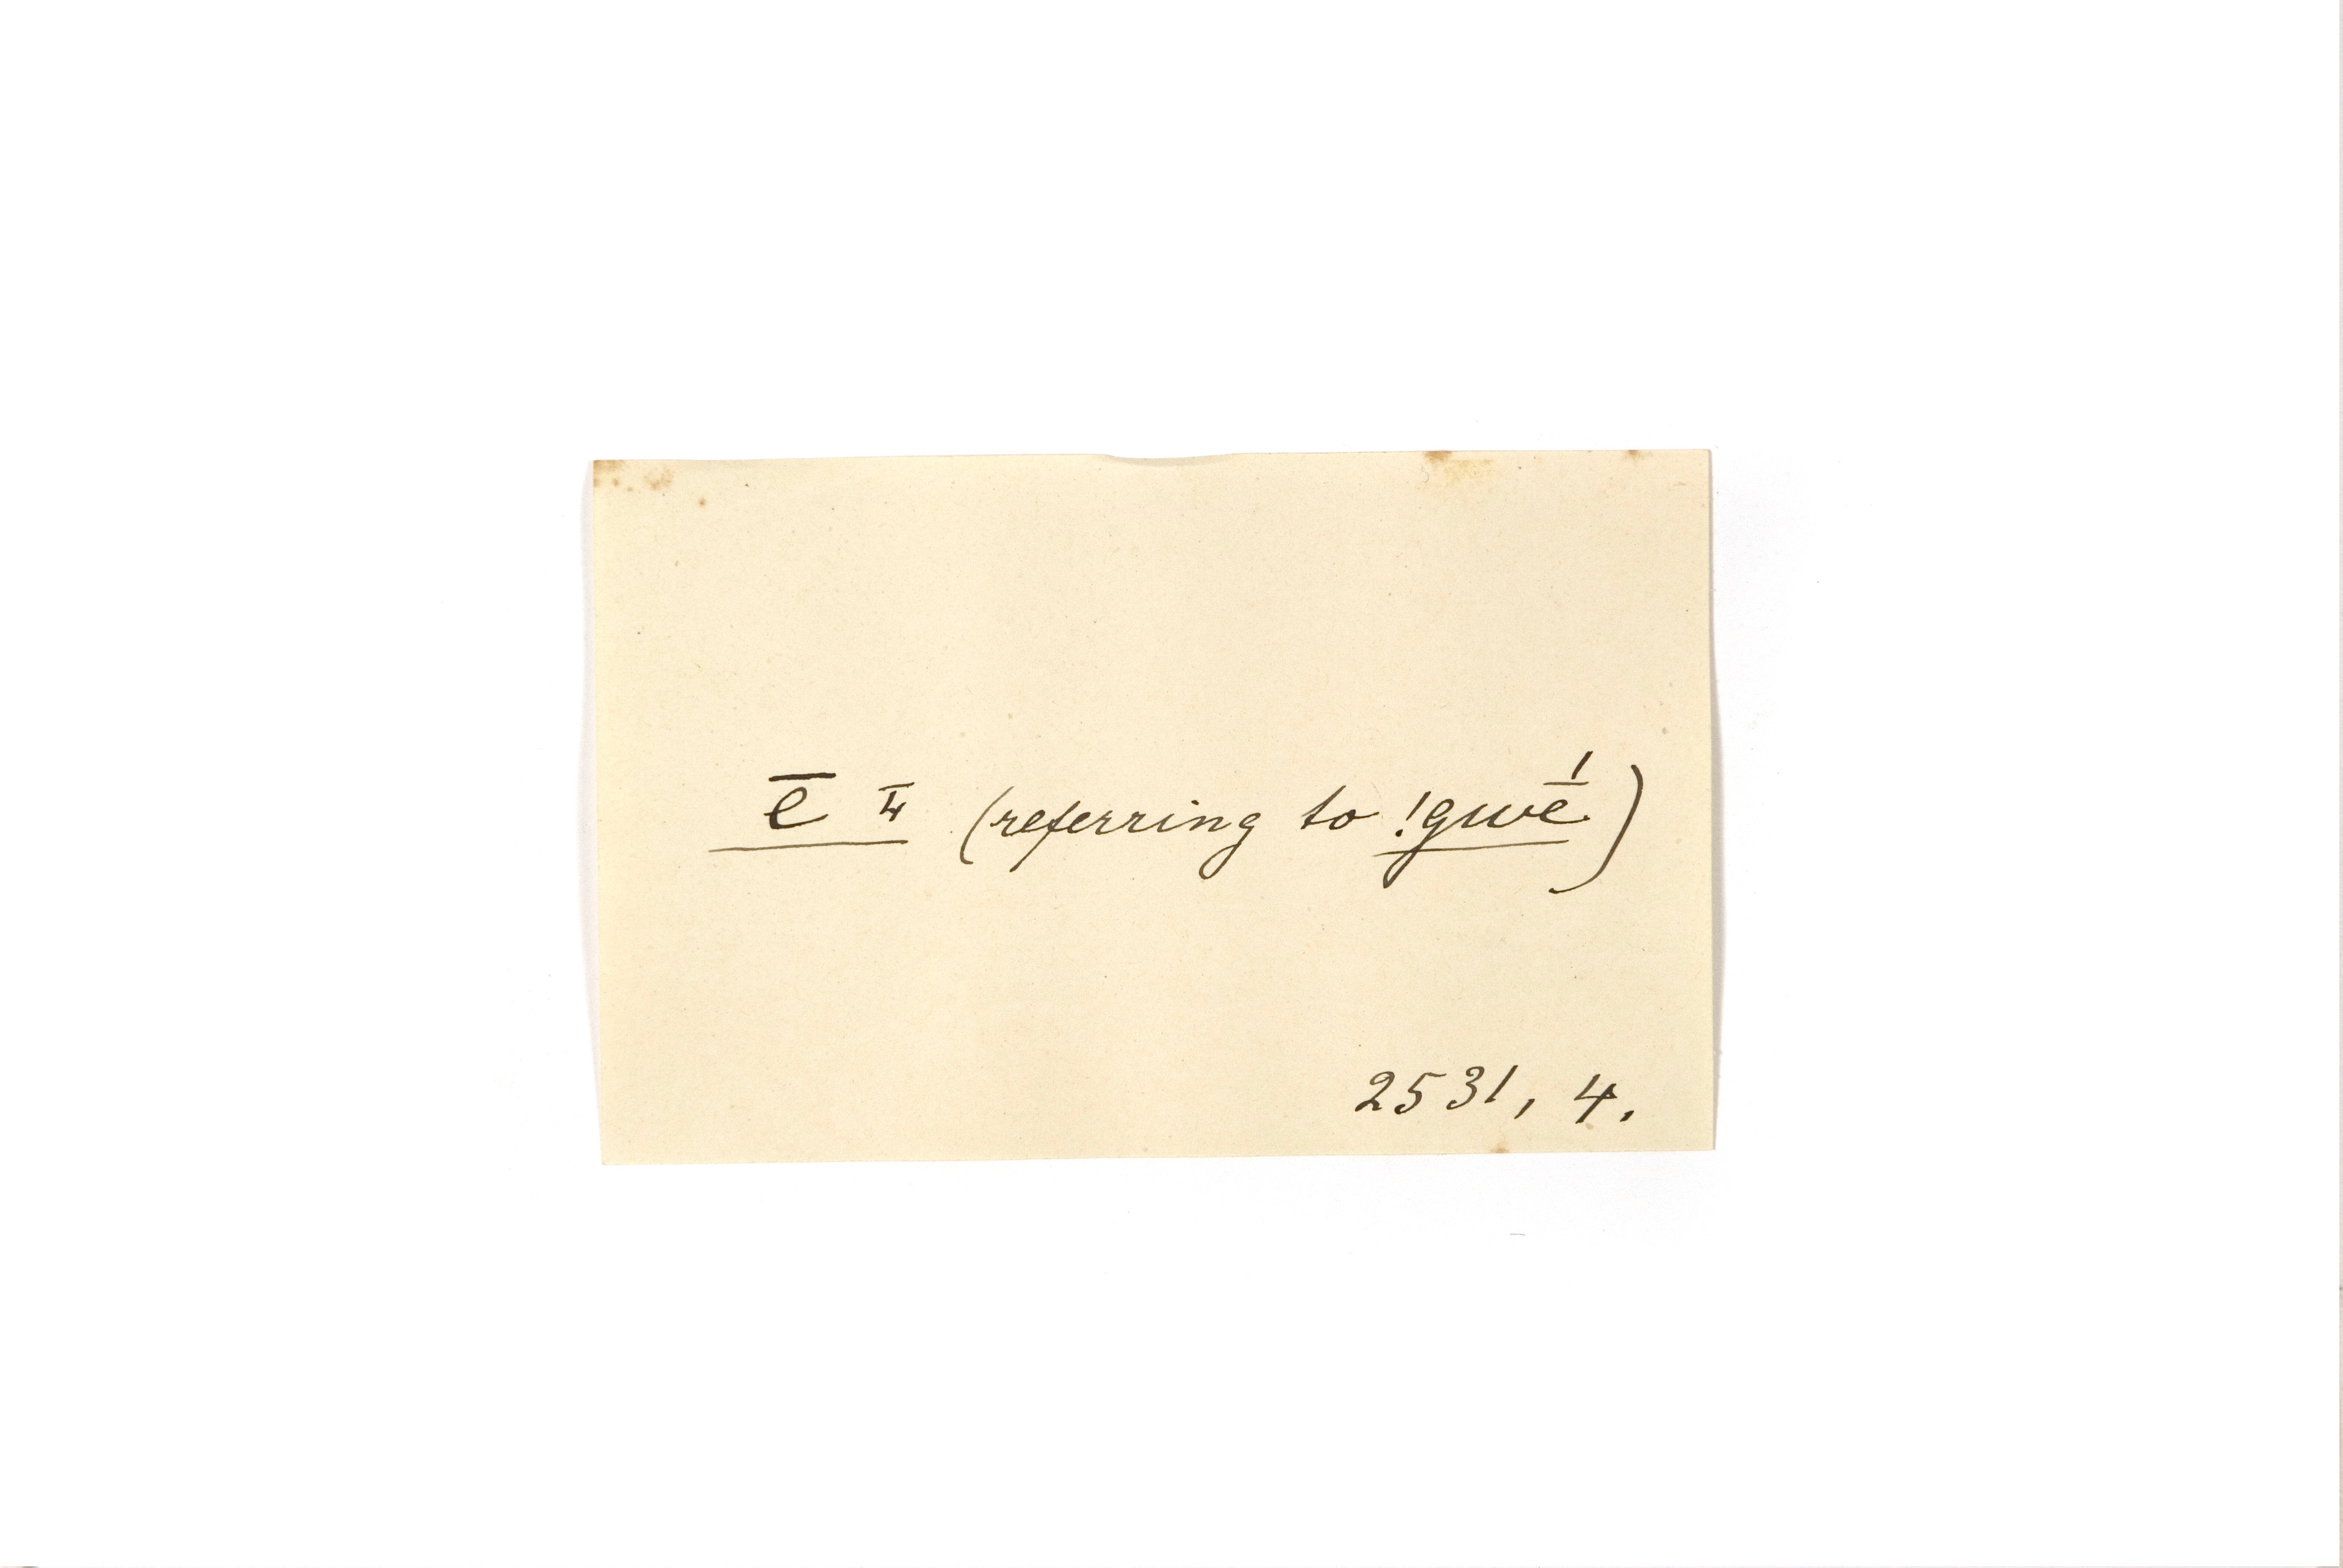 ē 4̄ (referring to !gwḗ)
2531, 4.